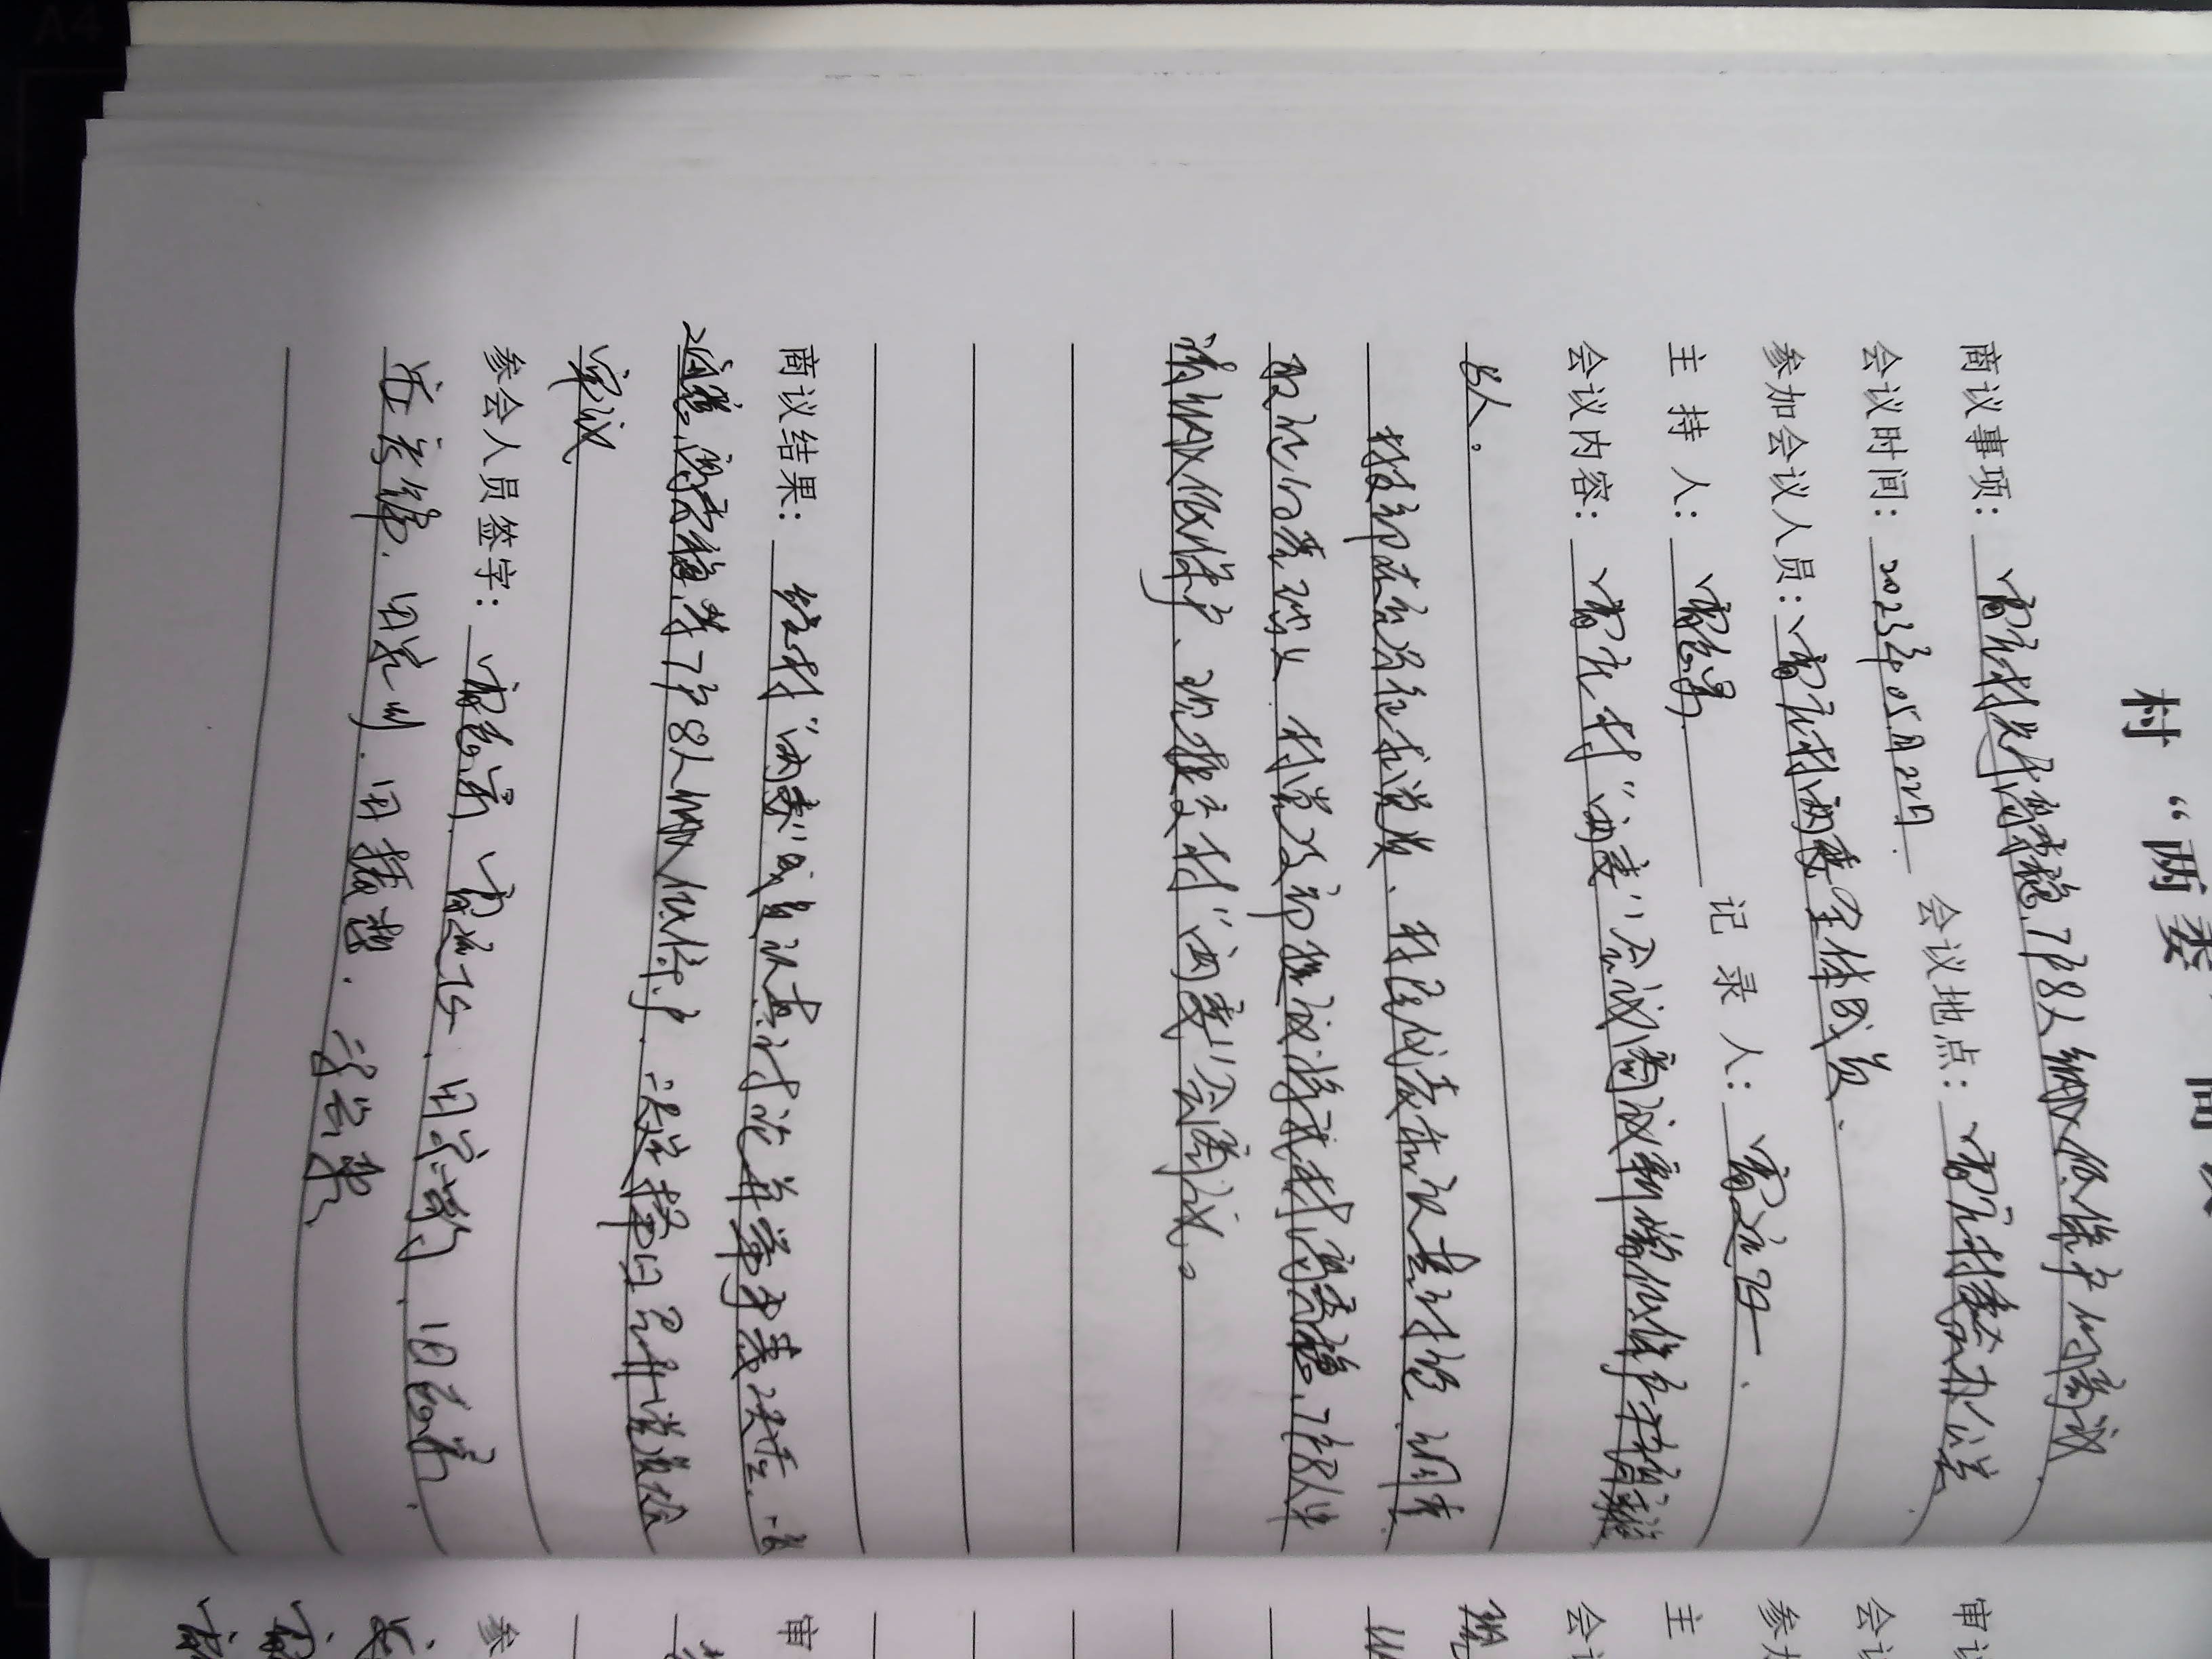 村“两委”商议
商议事项：雷庄村关于高秀稳、7户8人纳入低保户的商议
会议时间：2023年05月22日 会议地点：雷庄村委会办公室
参加会议人员：雷庄村两委全体成员
主持人：雷 记录人：雷远
会议内容：雷庄村“两委”会议商议新增低保户高秀稳
8人。
村支部在充分征求党员、村民代表和认真讨论、调查、
取证的基础上，村党支部提议将我村高秀稳、7户8人申
请纳入低保户、现提交村“两委”会商议。
商议结果：经村“两委”成员认真讨论并举手表决后、一致
同意、高秀稳等7户8人纳入低保户、决定择日召开党员大会
审议
参会人员签字：雷 雷远 田 田
田 田播想
审议
会议
参加
主
会议
审
参